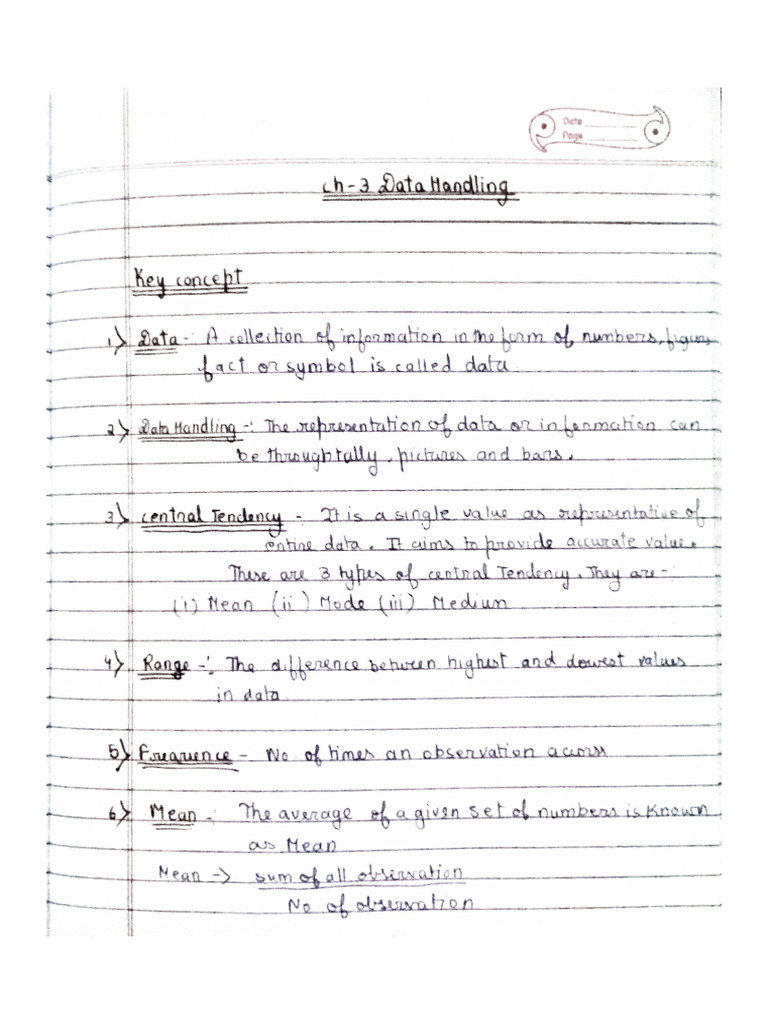 Date
Page
Ch-3 Data Handling
Key concept
1) Data -: A collection of information in the form of numbers, figure
fact or symbol is called data
2) Data Handling -: The representation of data or information can
be through tally, pictures and bars.
3) Central Tendency -: It is a single value as representative of
entire data. It aims to provide accurate value.
These are 3 types of central Tendency. They are -:
(i) Mean (ii) Mode (iii) Medium
4) Range -: The difference between highest and lowest values
in data
5) Frequence - No of times an observation accross
6) Mean -: The average of a given set of numbers is Known
as Mean
Mean -> sum of all observation
No of observation